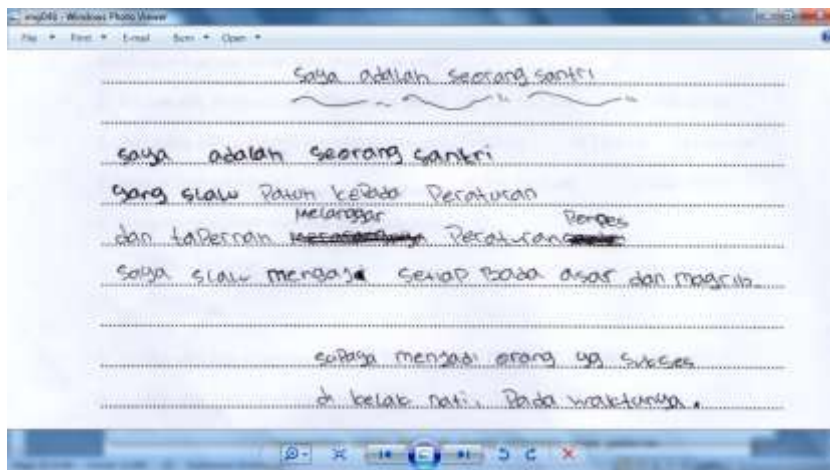 img046 - Windows Photo Viewer
File Print E-mail Burn Open
Saya adalah seorang santri
saya adalah seorang santri
yang slalu Patuh kePada Peraturan
Melanggar Ponpes
dan taPernah Peraturan
saya slalu mengaji setiap Bada asar dan magrib
suPaya menjadi orang yg sukses
di kelak nati, Pada waktunya.